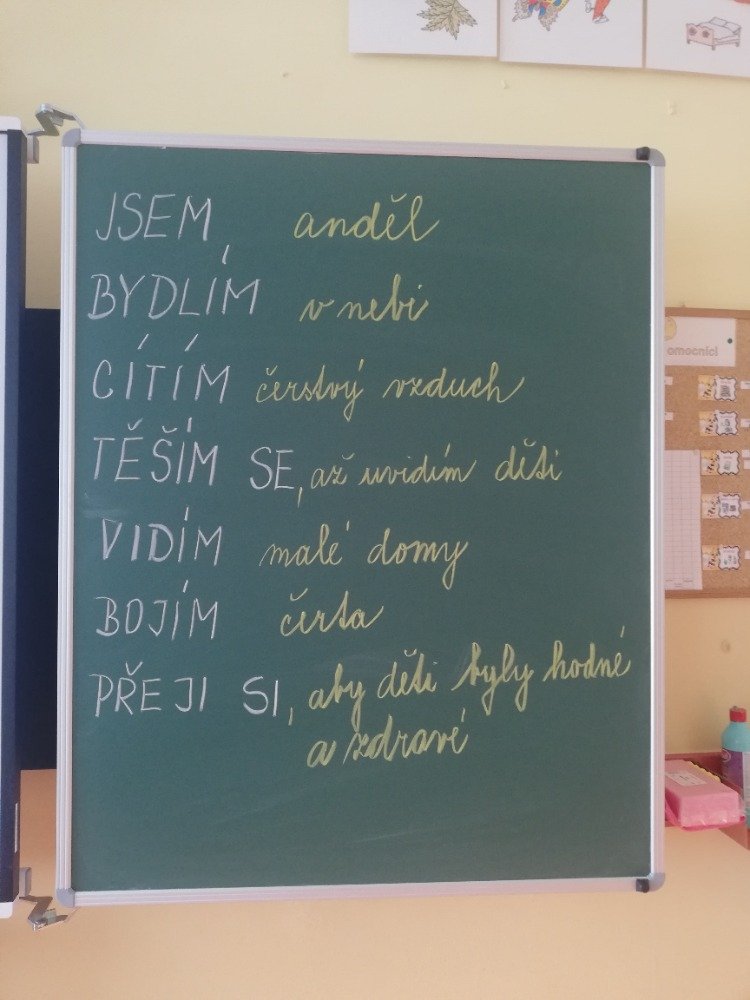 JSEM anděl
BYDLÍM v nebi
CÍTÍM čerstvý vzduch
TĚŠÍM SE, až uvidím děti
VIDÍM malé domy
BOJÍM čerta
PŘEJI SI, aby děti byly hodné
a zdravé
omocníci